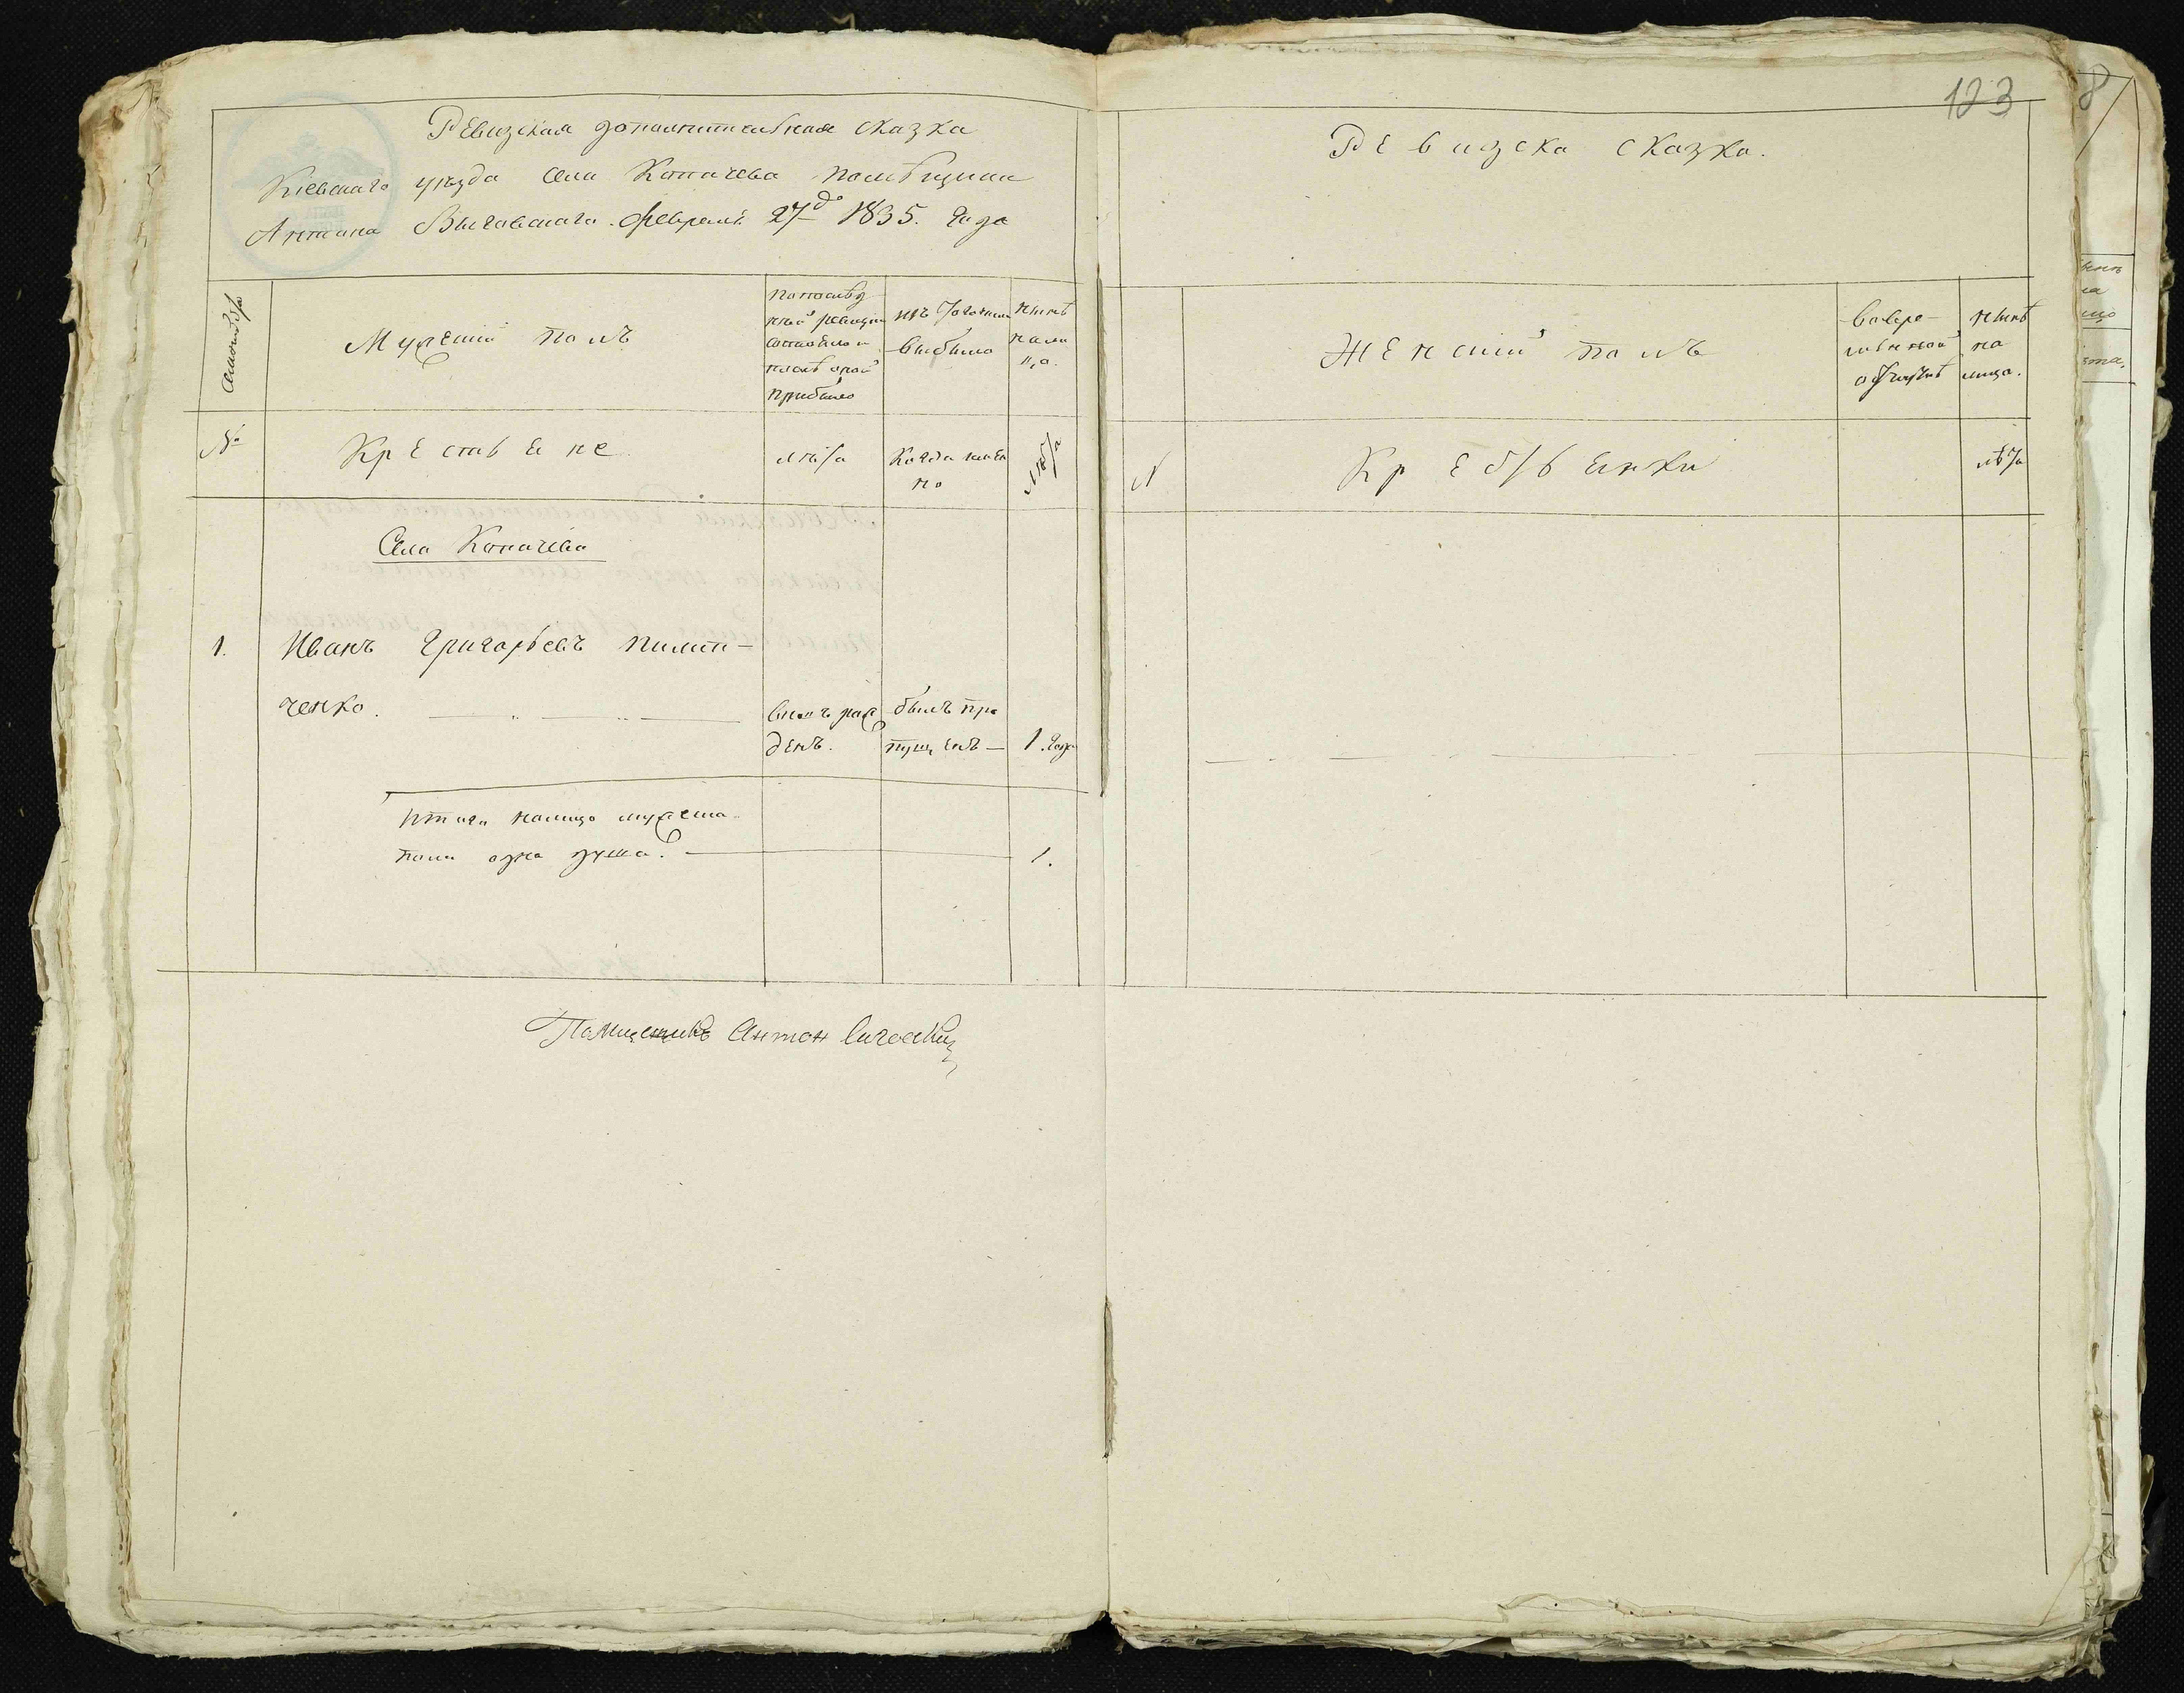 Ревизская дополнительная сказка
Кіевскаго уезда села Копачева помѣщика
Антона Вычавскаго. Февраля 27го 1835. года
Мужеский полъ
по послѣд
ней ревизии
состояло и
послѣ оной
прибыло
изъ того числа
выбыло
нынѣ
нали
цо.
№
Крестьяне
лѣта
Когда имен
но
лѣта
Села Копачева
1.
Иванъ Григорьевъ Пилип-
ченко.
вновь рож
денъ.
былъ про
пущенъ —
1. года
Итого налицо мужеска
пола одна душа. —
1.
Помещикъ Антон
123
Ревизска сказка.
Женский полъ
вовре-
менной
отлучкѣ
нынѣ
на
лицо.
N
Крестьянки
лѣта
8